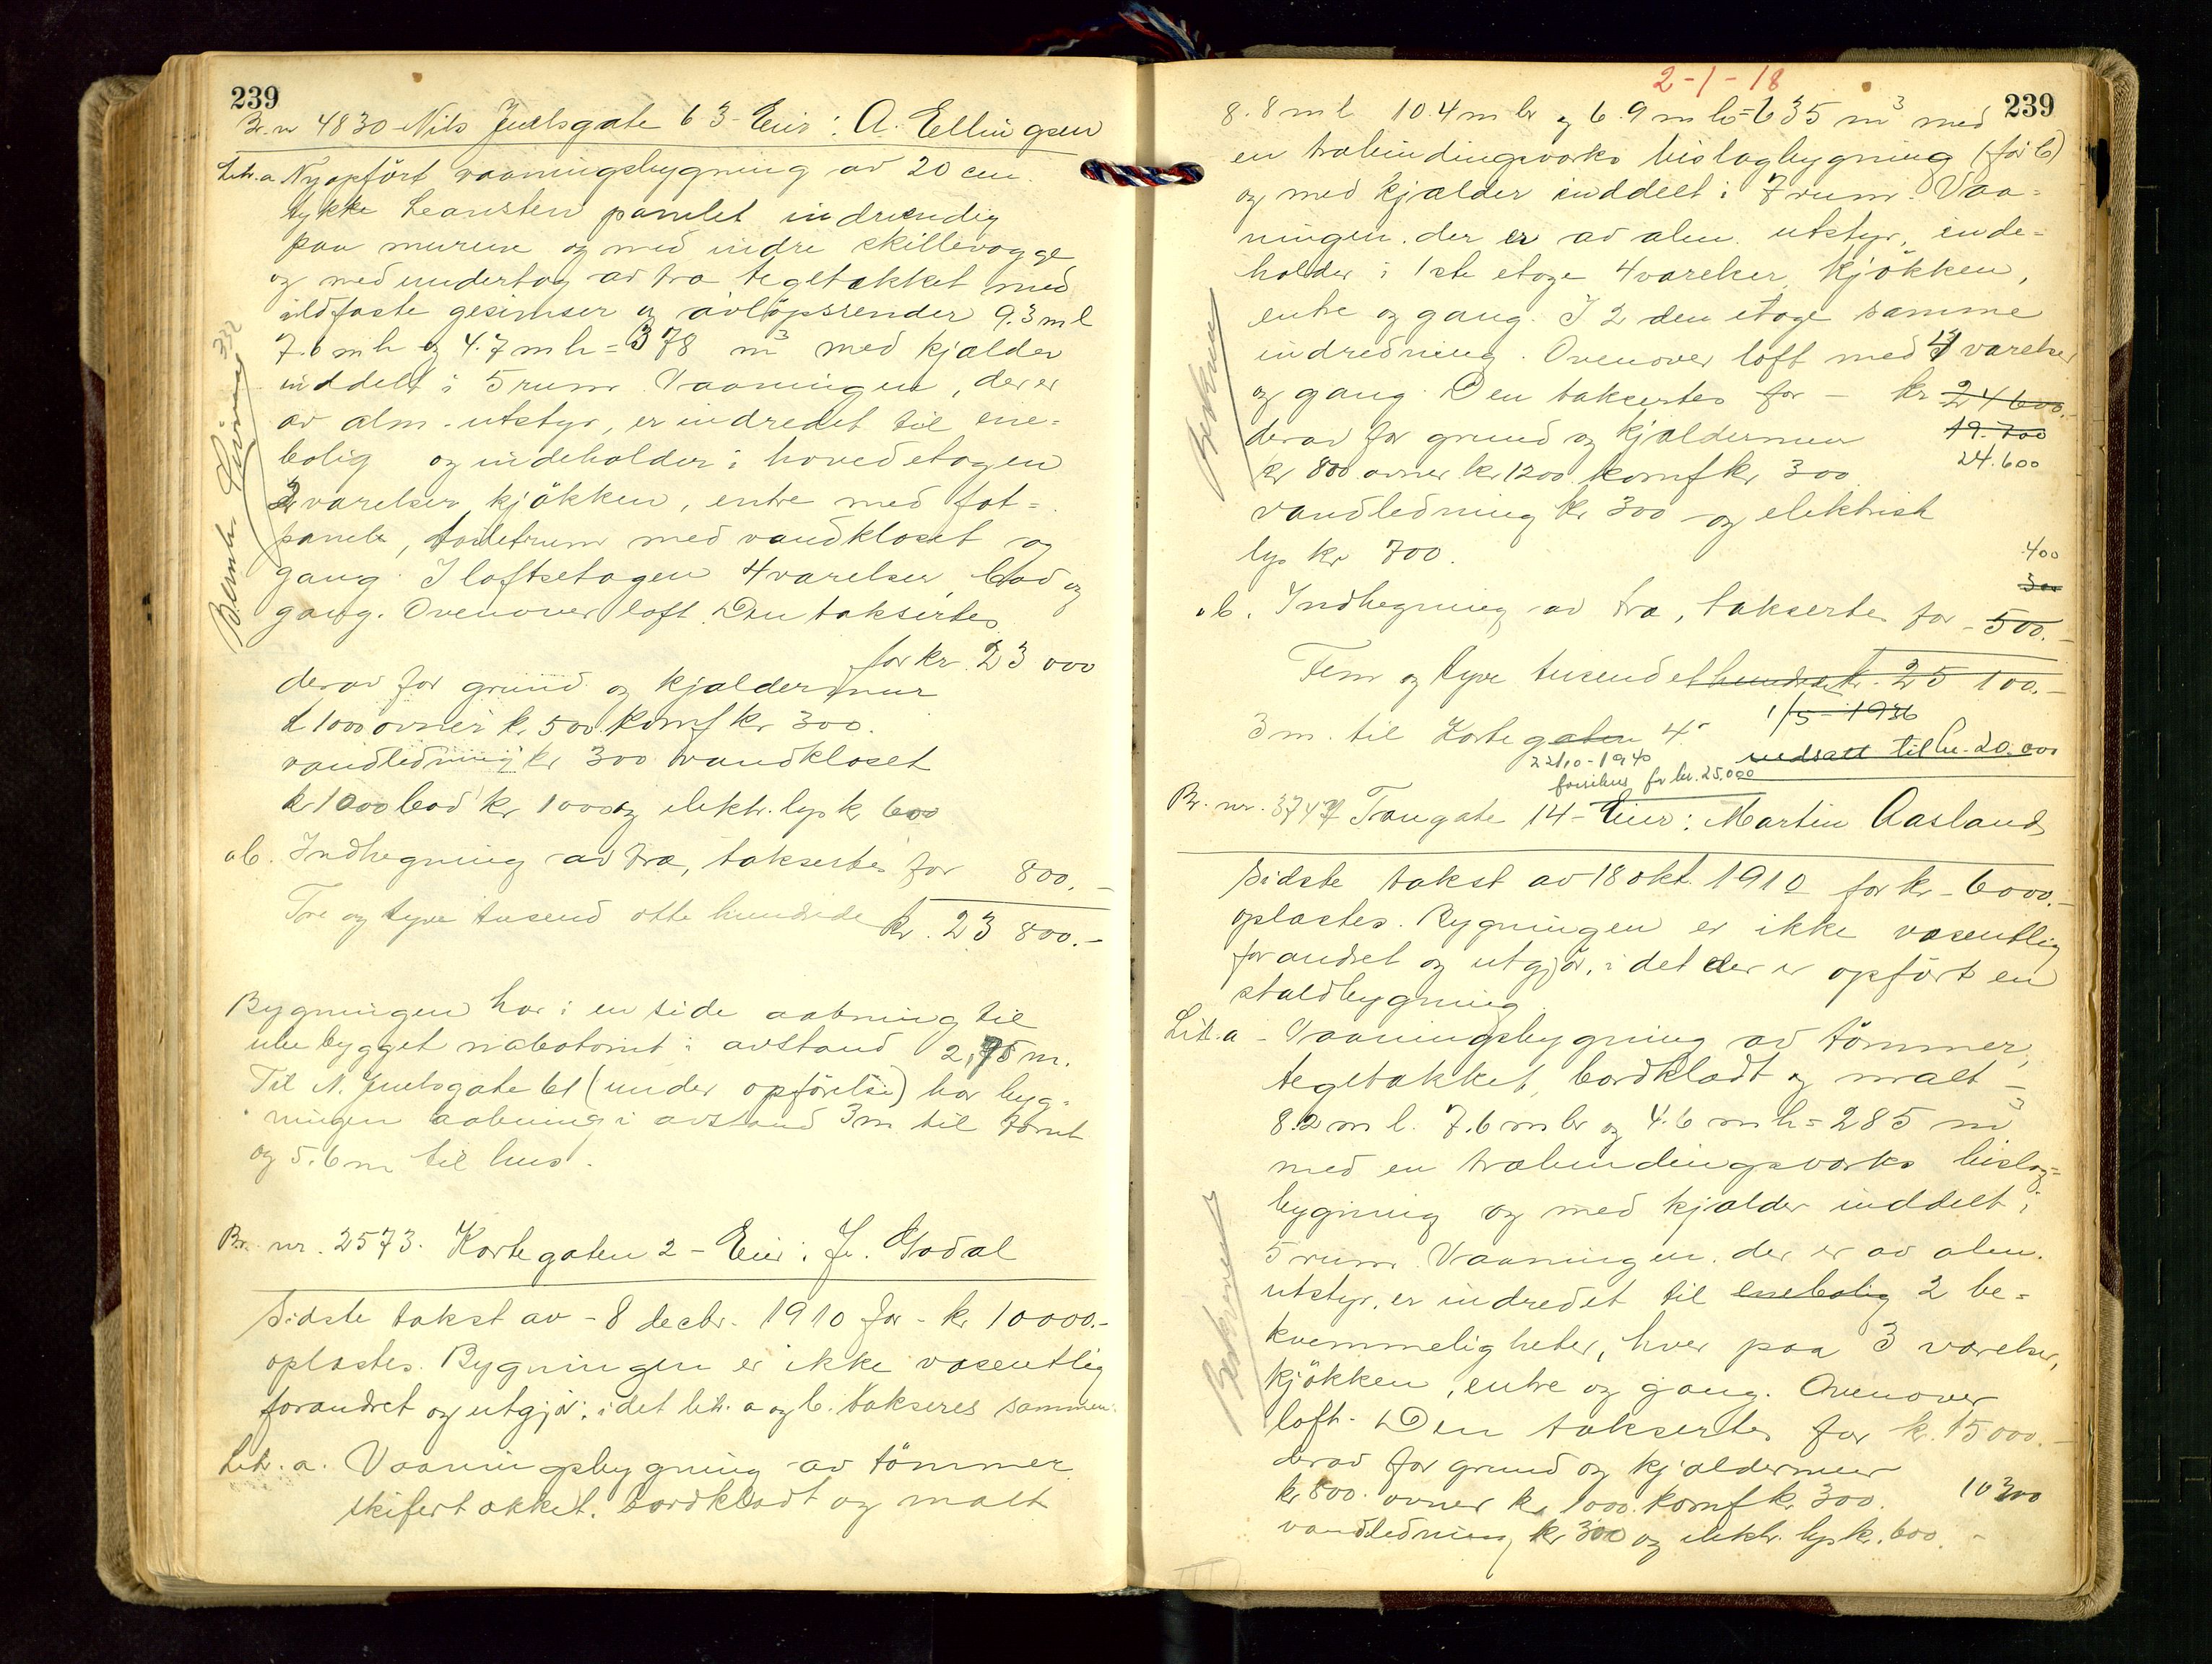 239
Br. nr 4830 Nils Juelsgate 63 - Eier: A. Ellingsen
Litr. a Nyopfört vaaningsbygning av 20 cm.
tykke Leansten panelet indvendig
paa murene og med indre skillevægge
og med undertag av træ tegltækket med
ildfaste gesimser og avlöpsrender 9.3 m l
7.6 m br og 4.7 m h = 378 m3 med kjælder
inddelt i 5 rum. Vaaningen, der er
av alm. utstyr, er indredet til ene=
bolig og indeholder i hovedetagen
2 værelser kjökken, entre med fot=
panel, toiletrum med vandkloset og
gang. I loftsetagen 4 værelser, bad og
gang. Ovenover loft. Den taksertes
for kr. 23 000
derav for grund og kjældermur
k 1000 ovner kr. 500 komf kr 300.
vandledning kr 300 vandkloset
kr 1000 bad kr 1000 og elektr. lys kr 600
" b. Indhegning av træ, taksertes for 800.-
Tre og tyve tusend otte hundrede kr. 23 800.-
Bygningen har i en side aabning til
ubebygget nabotomt i avstand 2,75 m.
Til N. Juelsgate 61 (under opförelse) har byg=
ningen aabning i avstand 3 m til tomt
og 5.6 m til hus.
Br. nr. 2573. Kortegaten 2 - Eier: Fr. Godal
Sidste takst av - 8 decbr. 1910 for - kr 10000.-
oplæstes. Bygningen er ikke væsentlig
forandret og utgjör, i det litr. a og b. takseres sammen:
Litr. a. Vaaningsbygning av tömmer
skifertækket, bordklædt og malt
2-1-18
239
8.8 m l 10.4 m br og 6.9 m h = 635 m3 med
en træbindingsværks bislagbygning (för b)
og med kjælder inddelt i 7 rum. Vaa=
ningen, der er av alm. utstyr, inde=
holder i 1ste etage 4 værelser, kjökken,
entre og gang. I 2den etage samme
indredning. Ovenover loft med 4 værelser
og gang. Den taksertes for - kr 24 600.-
derav for grund og kjældermur 19.700
kr 800 ovner kr 1200 komf kr 300 24.600
vandledning kr 300 og elektrisk
lys kr 700.
400
300
" b. Indhegning av træ, taksertes for - 500.-
Fem og tyve tusend et hundrede kr. 25 100.-
1/5 - 1936
3 m. til Kortegaten 4.
nedsatt til kr. 20.000
22/10-1940
forsikres for kr. 25.000
Br. nr. 3747 Tangate 14 - Eier: Martin Aasland
Sidste takst av 18 okt. 1910 for kr - 6000.-
oplæstes. Bygningen er ikke væsentlig
forandret og utgjör, i det der er opfört en
staldbygning.
Litr. a - Vaaningsbygning av tömmer,
tegltækket, bordklædt og malt -
8.2 m l. 7.6 m br og 4.6 m h = 285 m3
med en træbindingsværks bislag=
bygning og med kjælder inddelt i
5 rum. Vaaningen, der er av alm.
utstyr, er indredet til enebolig 2 be=
kvemmeligheter, hver paa 3 værelser,
kjökken, entre og gang. Ovenover
loft. Den taksertes for kr. 15000.-
derav for grund og kjældermur
kr 800. ovner kr 1000. komf kr. 300. 10 300
vandledning kr 300 og elektr. lys kr. 600. -